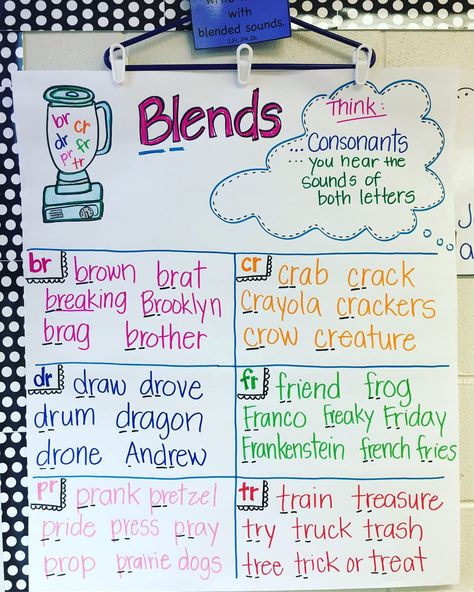 with
blended sounds.
Blends
br cr
dr fr
pr tr
Think:
...Consonants
you hear the
sounds of
both letters
br brown brat
breaking Brooklyn
brag brother
cr crab crack
Crayola crackers
crow creature
dr draw drove
drum dragon
drone Andrew
fr friend frog
Franco Freaky Friday
Frankenstein french fries
pr prank pretzel
pride press pray
prop prairie dogs
tr train treasure
try truck trash
tree trick or treat